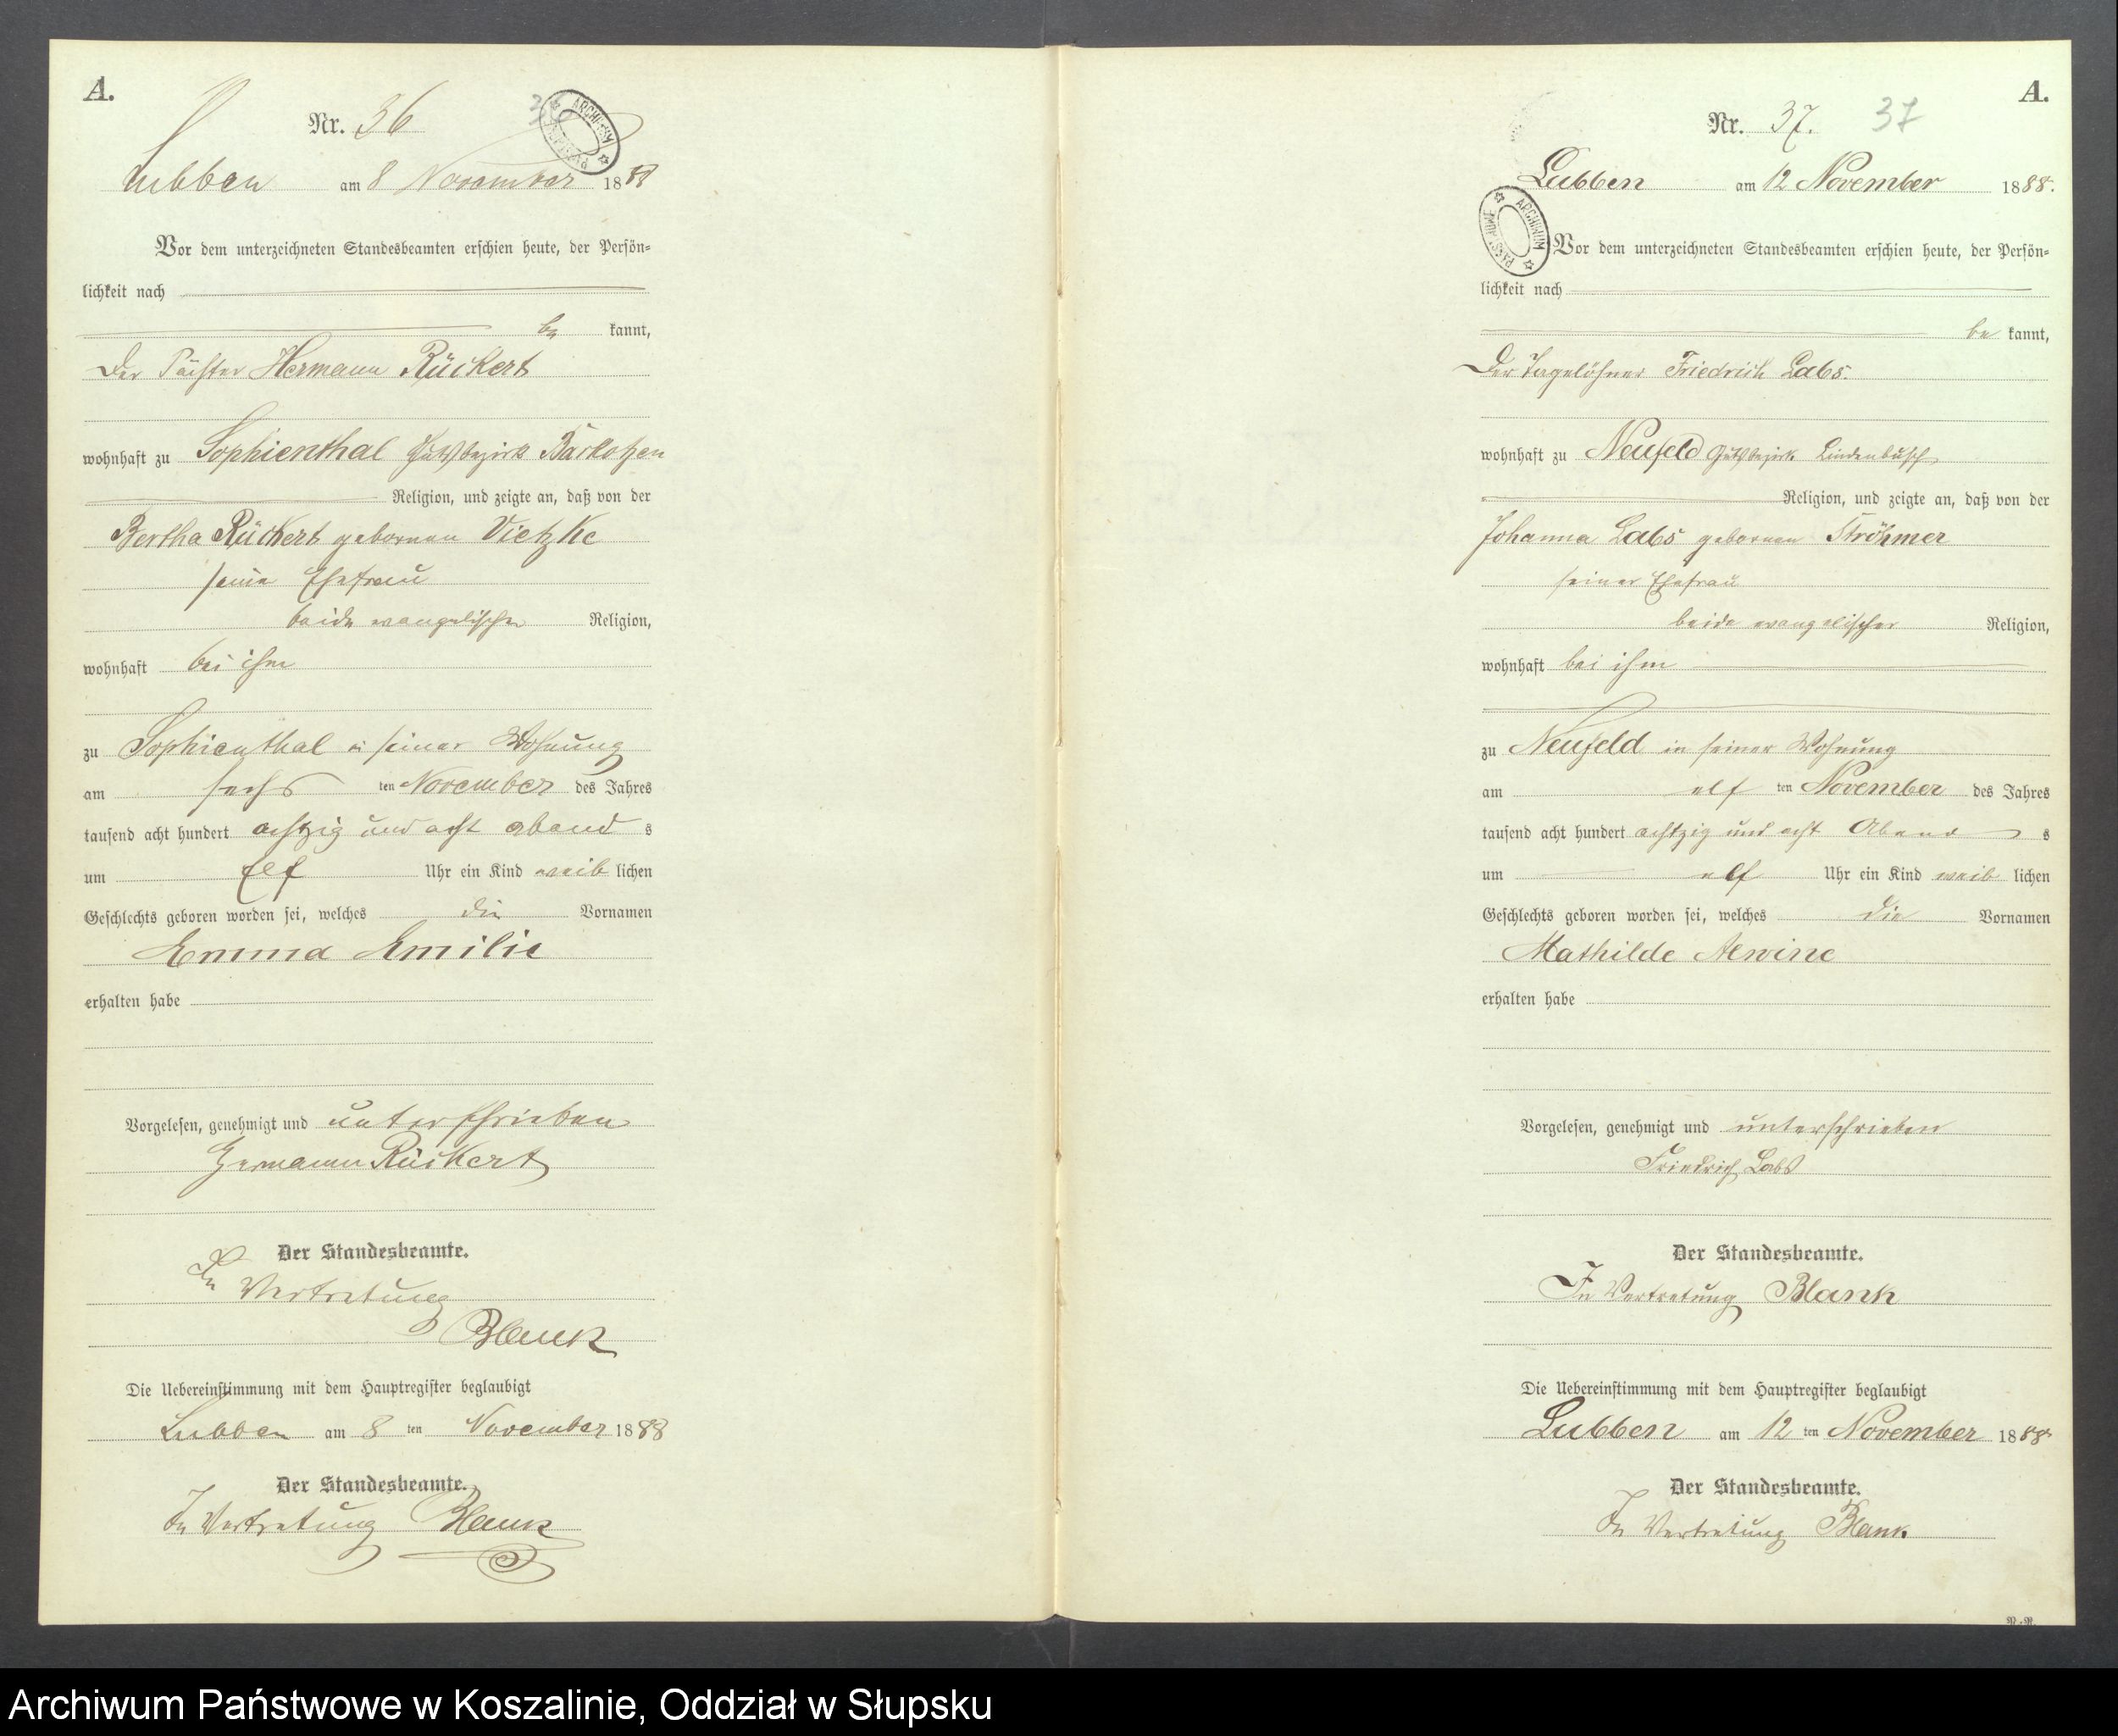 A.
Nr. 36
Lubben am 8 November 1888
Vor dem unterzeichneten Standesbeamten erschien heute, der Persön-
lichkeit nach
be kannt,
Der Pächter Hermann Rückert
wohnhaft zu Sophienthal Gutsbezirk Barkotzen
Religion, und zeigte an, daß von der
Bertha Rückert geborenen Vietzke
seine Ehefrau
beide evangelischer Religion,
wohnhaft bei ihm
zu Sophienthal in seiner Wohnung
am sechs ten November des Jahres
tausend acht hundert achtzig und acht abend s
um Elf Uhr ein Kind weib lichen
Geschlechts geboren worden sei, welches die Vornamen
Emma Emilie
erhalten habe
Vorgelesen, genehmigt und unterschrieben
Hermann Rückert
Der Standesbeamte.
In Vertretung
Blank
Die Uebereinstimmung mit dem Hauptregister beglaubigt
Lubben am 8 ten November 1888
Der Standesbeamte.
In Vertretung Blank
A.
Nr. 37. 37
Lubben am 12 November 1888.
ARCHIWUM PAŃSTWOWE
Vor dem unterzeichneten Standesbeamten erschien heute, der Persön-
lichkeit nach
be kannt,
Der Tagelöhner Friedrich Labs.
wohnhaft zu Neufeld Gutsbezirk Lindenbusch
Religion, und zeigte an, daß von der
Johanna Labs geborenen Ströhmer
seiner Ehefrau
beide evangelischer Religion,
wohnhaft bei ihm
zu Neufeld in seiner Wohnung
am elf ten November des Jahres
tausend acht hundert achtzig und acht Abend s
um elf Uhr ein Kind weib lichen
Geschlechts geboren worden sei, welches die Vornamen
Mathilde Alwine
erhalten habe
Vorgelesen, genehmigt und unterschrieben
Friedrich Labs
Der Standesbeamte.
In Vertretung Blank
Die Uebereinstimmung mit dem Hauptregister beglaubigt
Lubben am 12 ten November 1888
Der Standesbeamte.
In Vertretung Blank
Archiwum Państwowe w Koszalinie, Oddział w Słupsku